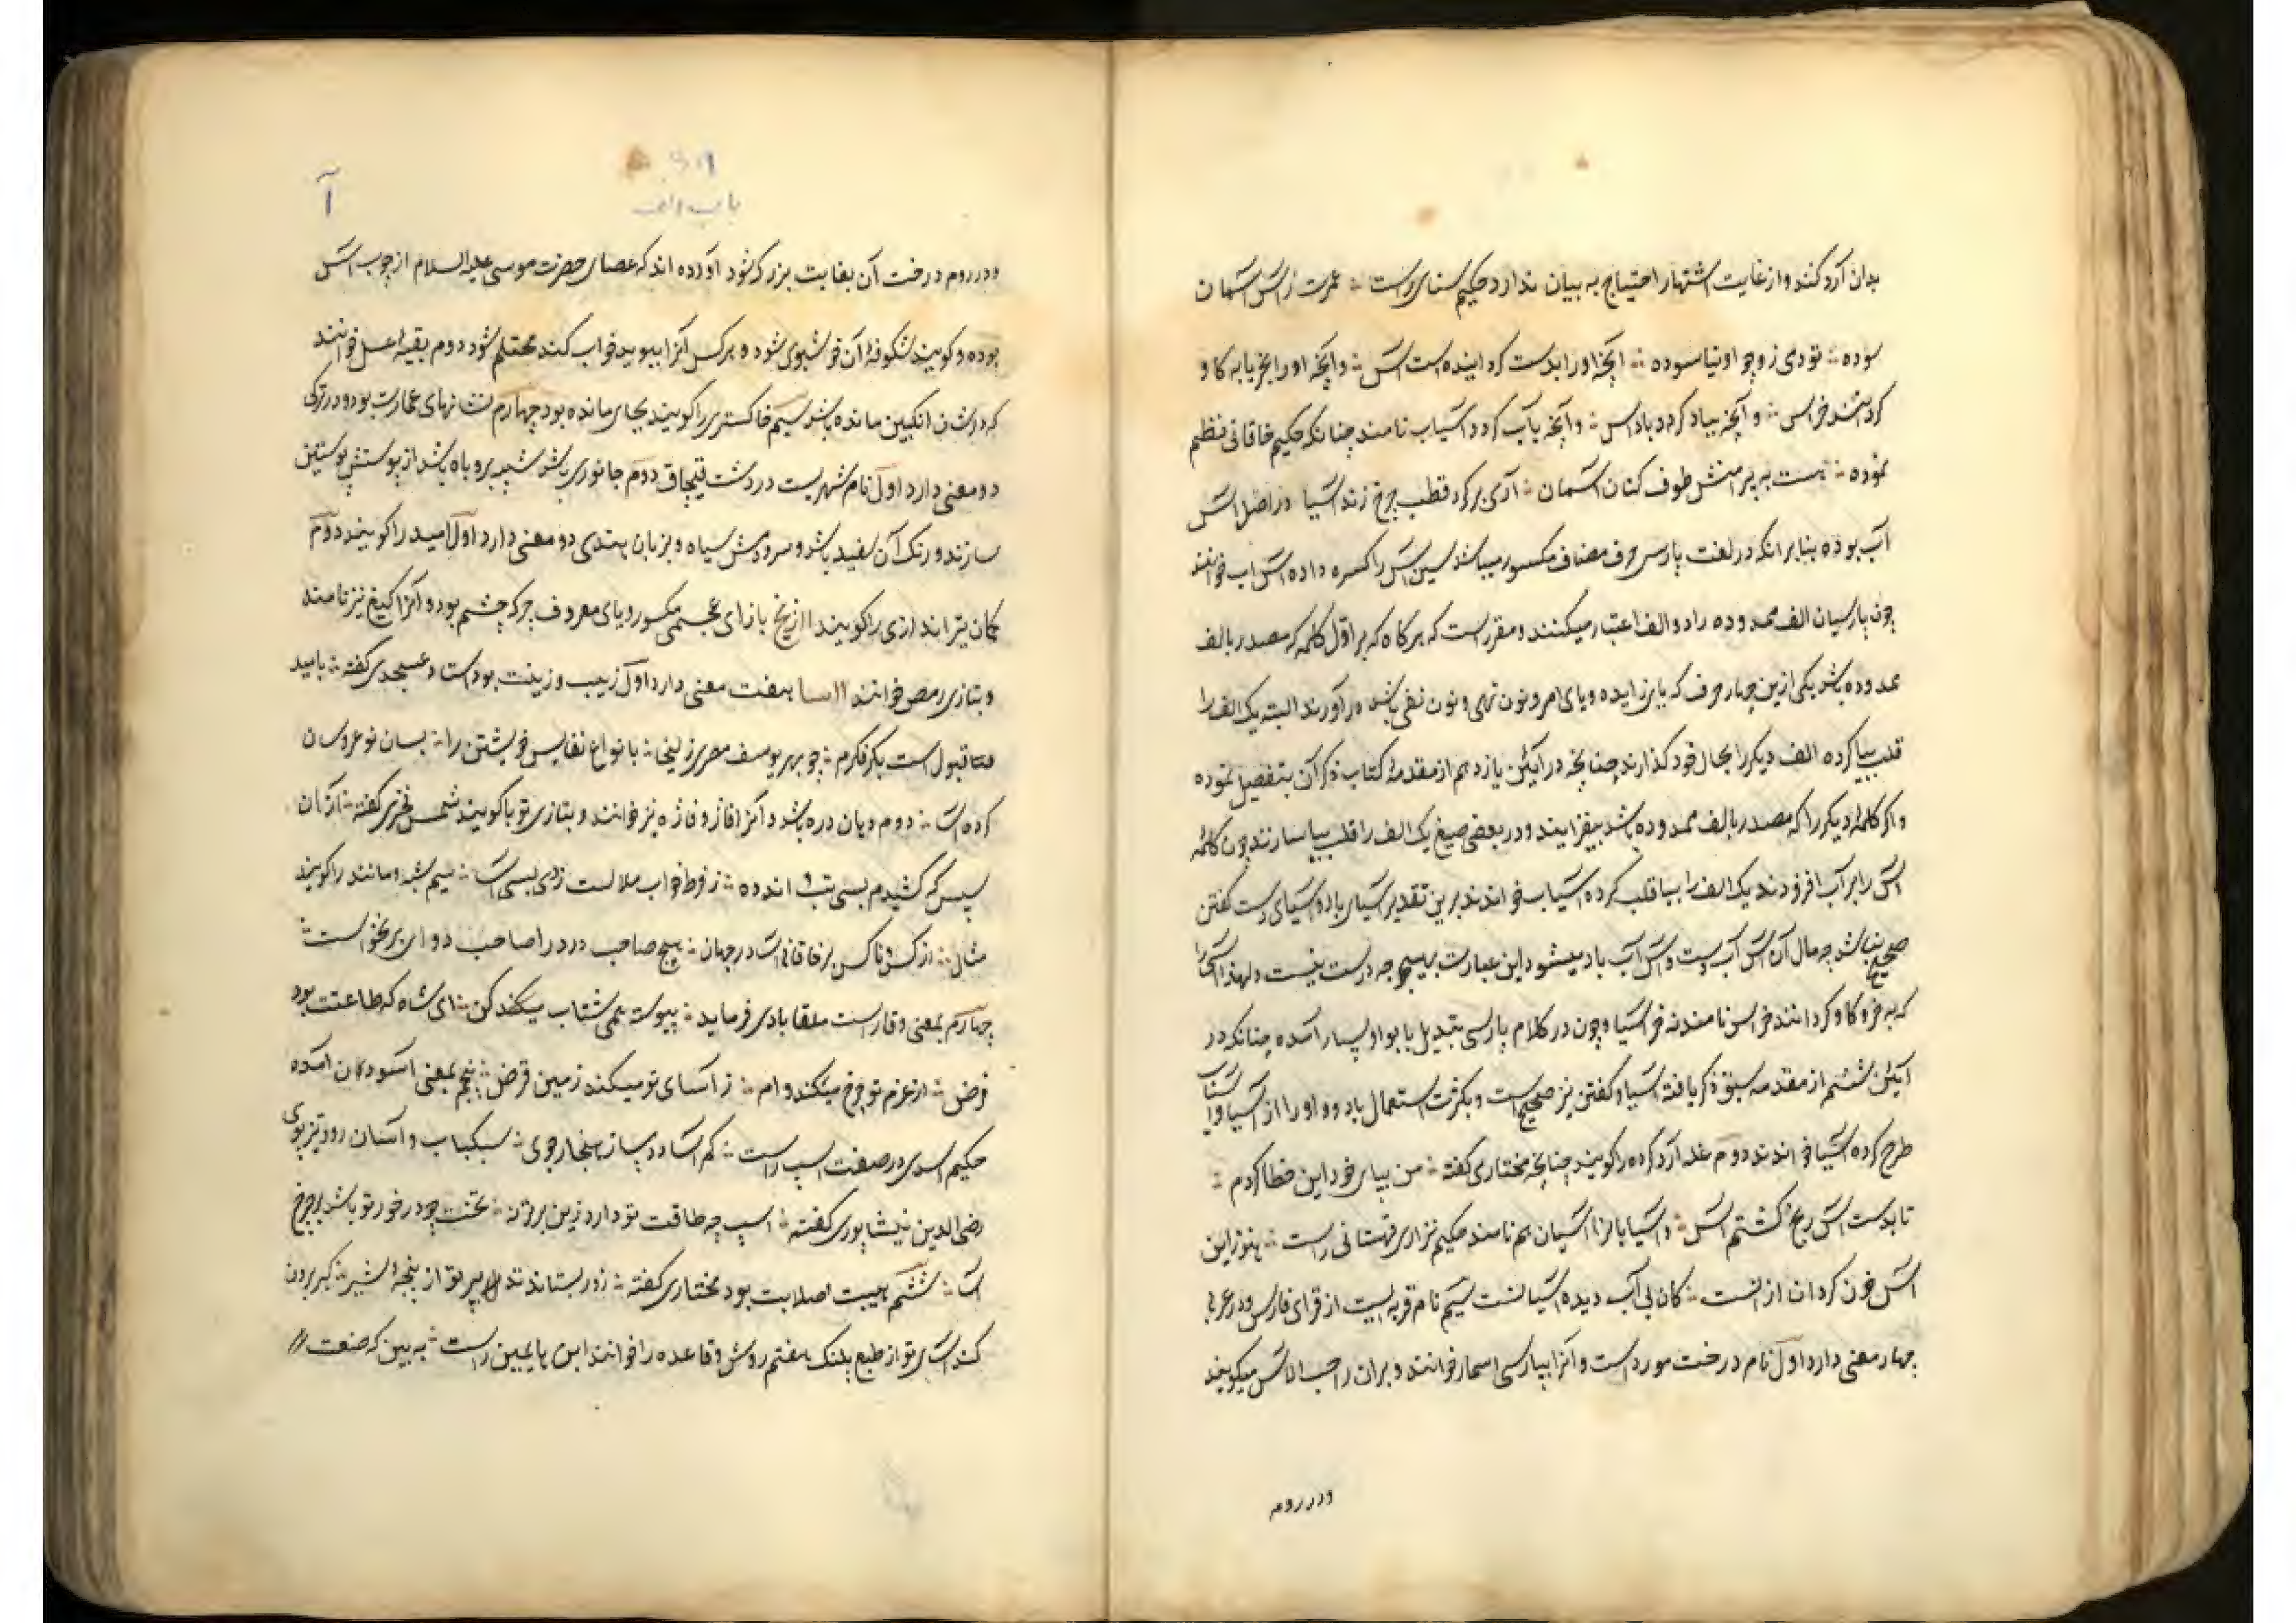 بدان آرد کنند و از غایت اشتهار احتیاج به بیان ندارد حکیم سنائی راست ؞ عمرت ز آس آسمان
سوده ؞ تو دی زوچو اونیاسوده ؞ آنچه او را بدست گردانیده است آس ؞ وآنچه او را بخر یا به گاو
گردانند خراس ؞ و آنچه بباد گردد باد آس ؞ وآنچه بآب گردد آسیاب نامند چنانکه حکیم خاقانی نظم
نموده ؞ هست به پیرامنش طوف کنان آسمان ؞ آری بر گرد قطب چرخ زند آسیا در اصل آس
آب بوده بنابر انکه در لغت پارس حرف مضاف مکسور میباشد سین آس را کسره داده آس آب خوانند
چون پارسیان الف ممدوده را دو الف اعتبار میکنند و مقرر است که هر کاه که بر اول کلمه که مصدر بالف
ممدوده باشد یکی ازین چهار حرف که بای زایده و یای امر و نون نهی و نون نفی باشد در آورند البته یک الف را
قلب بیا کرده الف دیگر را بحال خود گذارند چنانچه در آیین یازدهم از مقدمه کتاب ذکر آن بتفصیل نموده
و اگر کلمه دیگر را که مصدر بالف ممدوده باشد بیفزایند و در بعضی صیغ یک الف را قلب بیا سازند چون کلمه
آس را بر آب افزودند یک الف را بیا قلب کرده آسیاب خواندند برین تقدیر آسیای باد و آسیای دست گفتن
صحیح نباشد چه مال آن آس آب دست و آس آب باد میشود این عبارت بهیچ وجه درست نیست ولهذا آسی را
که به خر و گاو گردانند خراس نامند نه خر آسیا و چون در کلام پارسی تبدیل با بواو بسیار آمده چنانکه در
آیین ششم از مقدمه سبق ذکر یافته آسیاو گفتن نیز صحیح است و بکثرت استعمال با و واو را از آسیاب و آسیاو
طرح کرده آسیا خواندند دوم غله آرد کرده را گویند چنانچه مختاری گفته ؞ من بپای خود این خطا کردم ؞
تا بدست آس رنج گشتم آس ؞ و آسیا بالرا آسیان هم نامند حکیم نزاری قهستانی راست ؞ هنوز این
آس خون گردان ازانست ؞ کان بی آب دیده آسیانست سیم نام قریه ایست از قرای فارس و در عربی
چهار معنی دارد اول نام درخت مورد است و آنرا بپارسی اسمار خوانند و بر آن را حب الاس میگویند
ودر روم
باب الف
آ
ودر روم درخت آن بغایت بزرگ شود آورده اند که عصای حضرت موسی علیه السلام از چوب آس
بوده و گویند شگوفه آن خوشبوی شود و هر کس آنرا ببوید خواب کند محتلم شود دوم بقیه عسل خوانند
که در شان انگبین مانده باشد سیم خاکستری را گویند بجای مانده بود چهارم نشانهای عمارت بود و در ترکی
دو معنی دارد اول نام شهریست در دشت قبچاق دوم جانوری باشد شبیه بروباه باشد از پوستش پوستین
سازند و رنگ آن سفید باشد و سر دمش سیاه و بزبان هندی دو معنی دارد اول امید را گویند دوم
کمان تیر اندازی را گویند آژیخ با زای عجمی مکسور و یای معروف چرک چشم بود و آنرا کیغ نیز نامند
و بتازی رمص خوانند آسا بهفت معنی دارد اول زیب و زینت بود استاد عسجدی گفته ؞ بامید
قبول است بکر فکرم ؞ چو بهر یوسف مصری زلیخا ؞ با نواع نفایس خویشتن را ؞ بسان نو عروسان
کرده آسا ؞ دوم دهان دره باشد و آنرا فاژ و فاژه نیز خوانند و بتازی ثوبا گویند شمس فخری گفته ؞ از آن
سپس که کشیدم بسی تب و اندوه ؞ ز فرط خواب ملالت زدی بسی آسا ؞ سیم شبه و مانند را گویند
مثال ؞ از کس و ناکس ببر خاقانی آسا در جهان ؞ هیچ صاحب درد را صاحب دوایی بر نخواست ؞
چهارم بمعنی وقار است ملقابادی فرماید ؞ پیوسته همی شتاب میکند کن ؞ ای شاه که طاعتت بود
فرض ؞ از عزم تو چرخ میکند وام ؞ ز آسای تو میکند زمین قرض ؞ پنجم بمعنی آسودگان آمده
حکیم اسدی در صفت اسپ راست ؞ کم آسا و دمساز و هنجارجوی ؞ سبکپاب و آسان رو و تیز پوی
رضی الدین نیشاپوری گفته ؞ اسپ چه طاقت تو دارد زین بر نه ؞ تخت چو در خور تو باشد بر چرخ
آسا ؞ ششم هیبت و صلابت بود مختاری گفته ؞ زور بستاند تدبیر تو از پنجه شیر ؞ کبر بیرون
کند آسای تو از طبع پلنگ هفتم روش و قاعده را خوانند ابن یمین راست ؞ به بین که صنعت